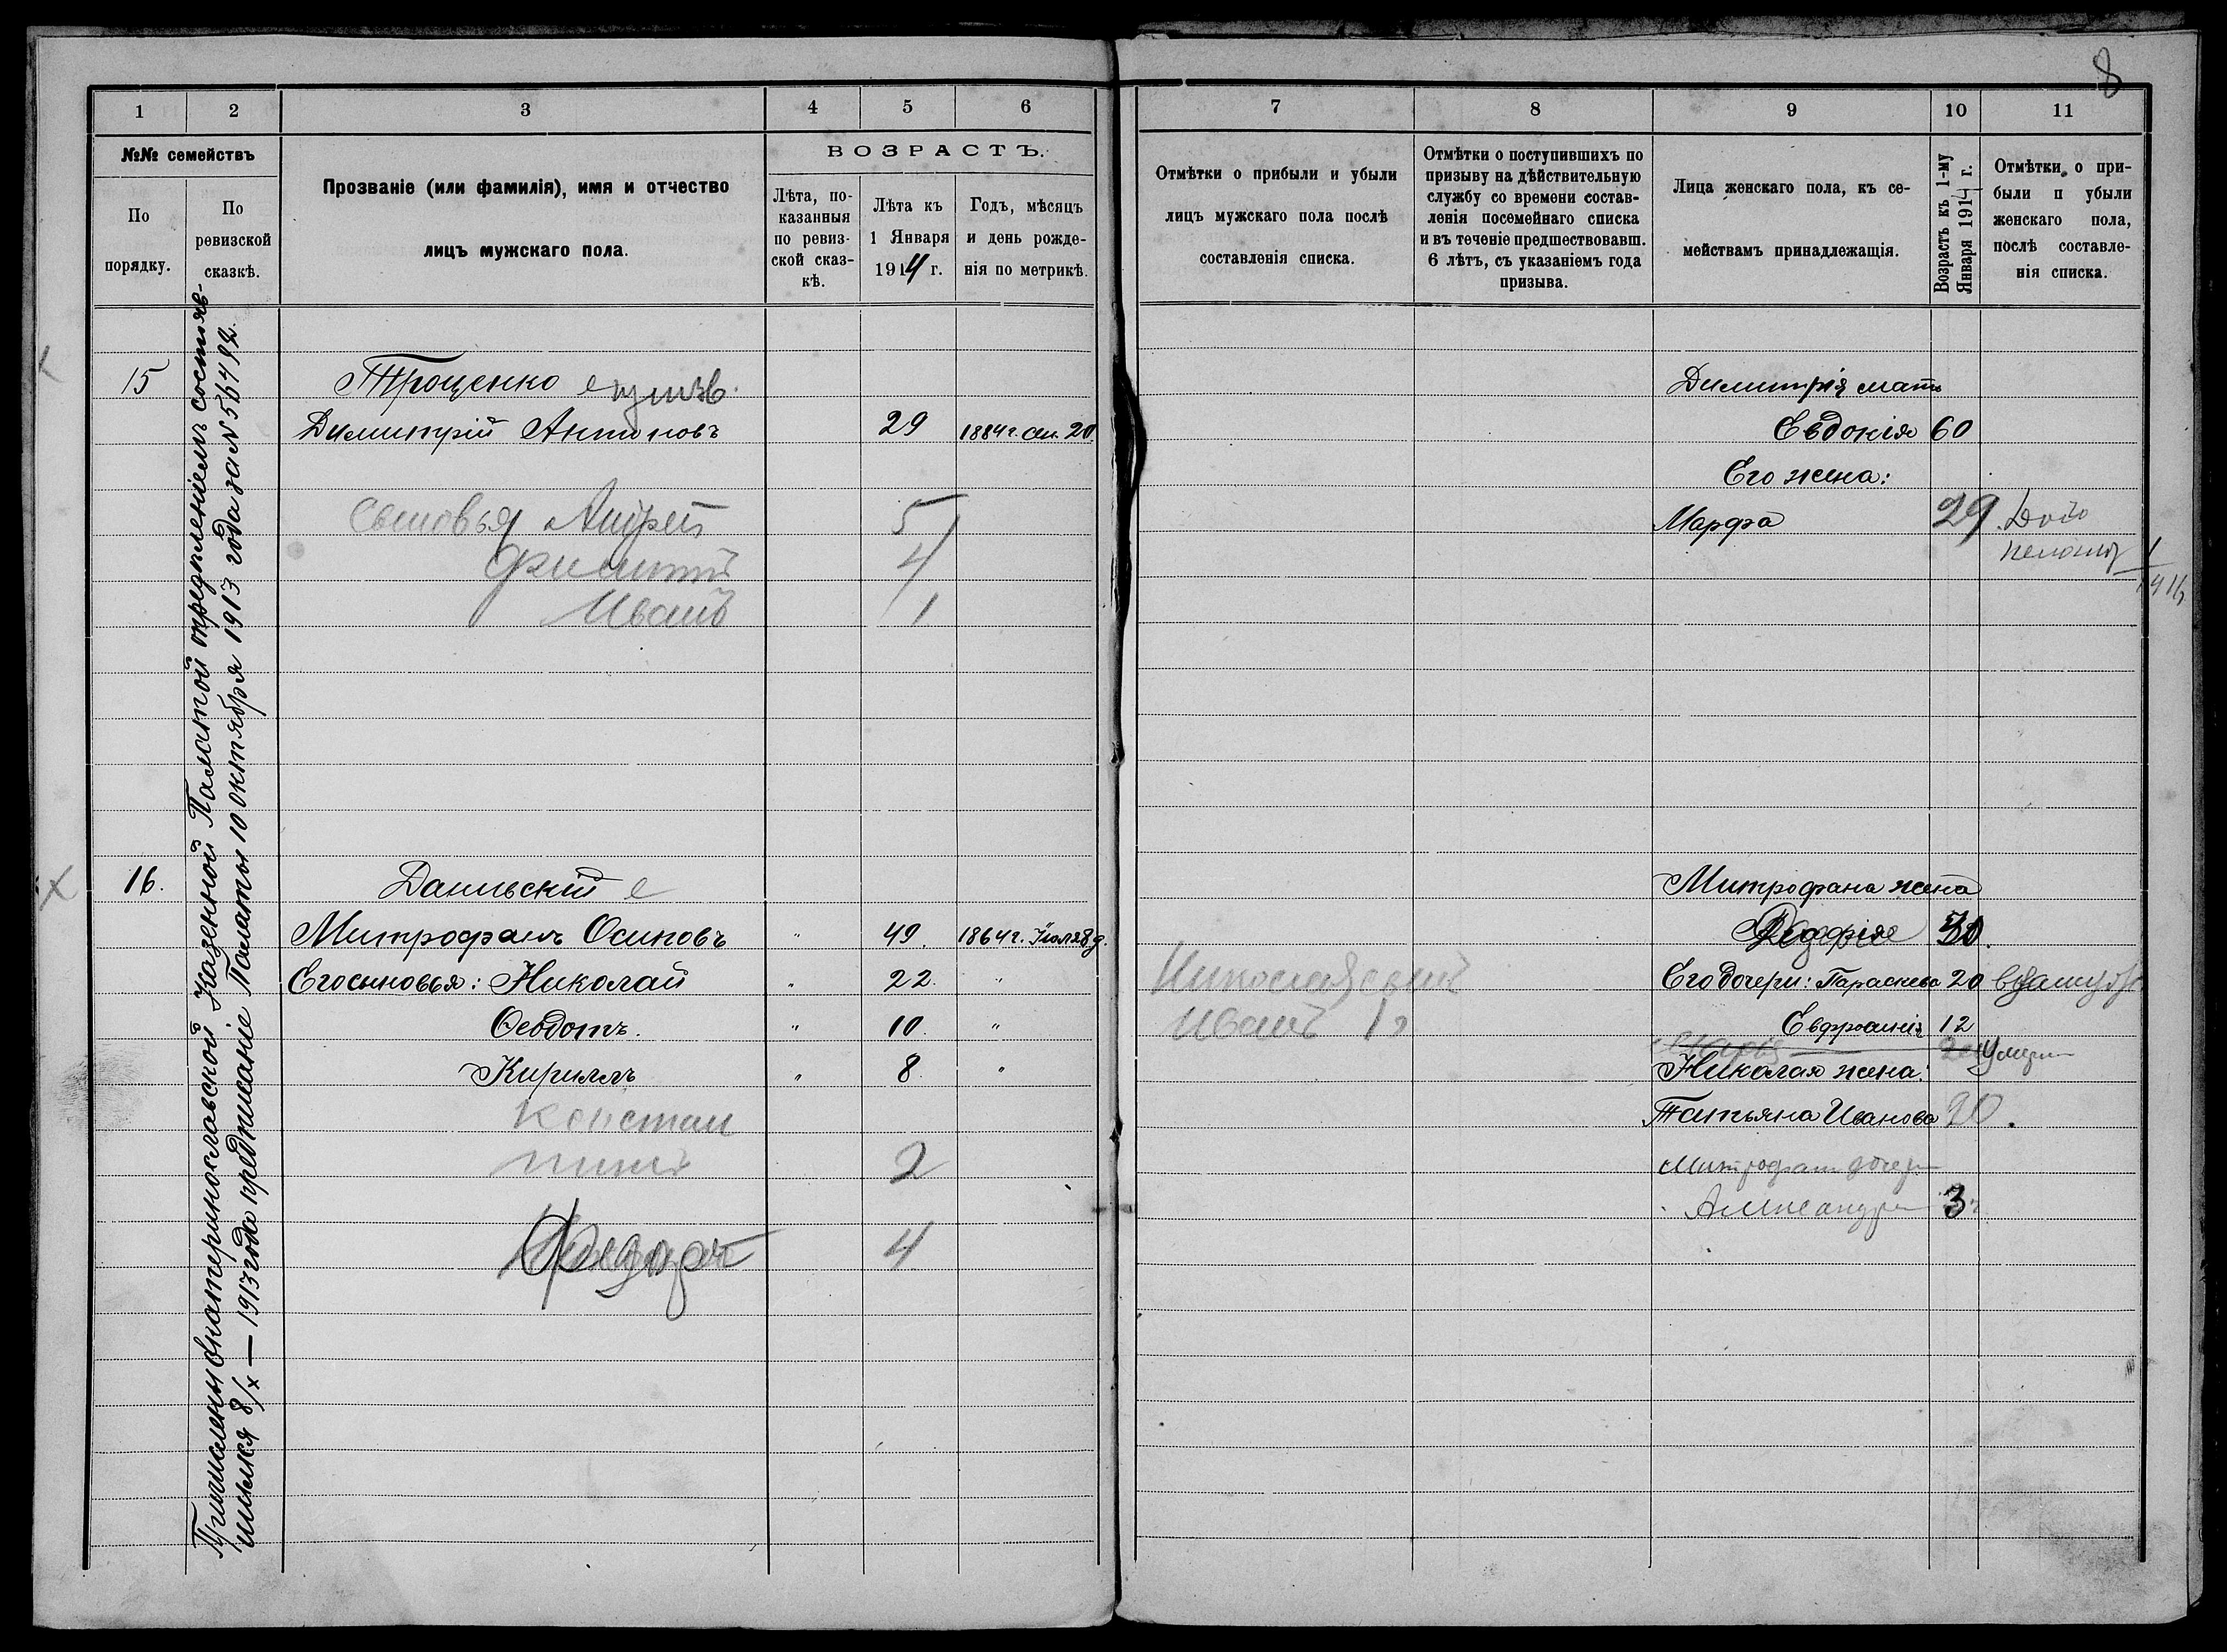 8
1 2 3 4 5 6
№№ семействъ
По порядку.
По ревизской сказкѣ.
Прозваніе (или фамилія), имя и отчество
лицъ мужскаго пола.
ВОЗРАСТЪ.
Лѣта, по-
казанныя
по ревиз-
ской сказ-
кѣ.
Лѣта къ
1 Января
1914 г.
Годъ, мѣсяцъ
и день рожде-
нія по метрикѣ.
7 8 9 10 11
Отмѣтки о прибыли и убыли
лицъ мужскаго пола послѣ
составленія списка.
Отмѣтки о поступившихъ по
призыву на дѣйствительную
службу со времени состав-
ленія посемейнаго списка
и въ теченіе предшествовавш.
6 лѣтъ, съ указаніемъ года
призыва.
Лица женскаго пола, къ се-
мействамъ принадлежащія.
Возрастъ къ 1-му
Января 1914 г.
Отмѣтки о при-
были п убыли
женскаго пола,
послѣ составле-
нія списка.
Причислены Екатеринославской Казенной Палатой опредѣленіемъ состояв-
шимся 8/х — 1913 года предписаніе Палаты 10 октября 1913 года за № 56492.
15 Троценко
Димитрій Антоновъ 29 1884 г. 20
Сыновья Андрей 5
Филиппъ 4
Иванъ 1
Димитрія мать
Евдокія 60
Его жена:
Марфа 29
16. Данильскій
Митрофанъ Осиповъ " 49. 1864 г. Іюля 28 д.
Его сыновья: Николай " 22. "
Ѳеодотъ. " 10. "
Кириллъ " 8 "
Констан
тинъ 2
Федоръ 4
Николая сынъ
Иванъ 1
Митрофана жена
50.
Его дочери: Параскева 20
Евфросинія 12
Марія Умерла
Николая жена:
Татьяна Иванова 20.
Митрофана дочери
Александра 3